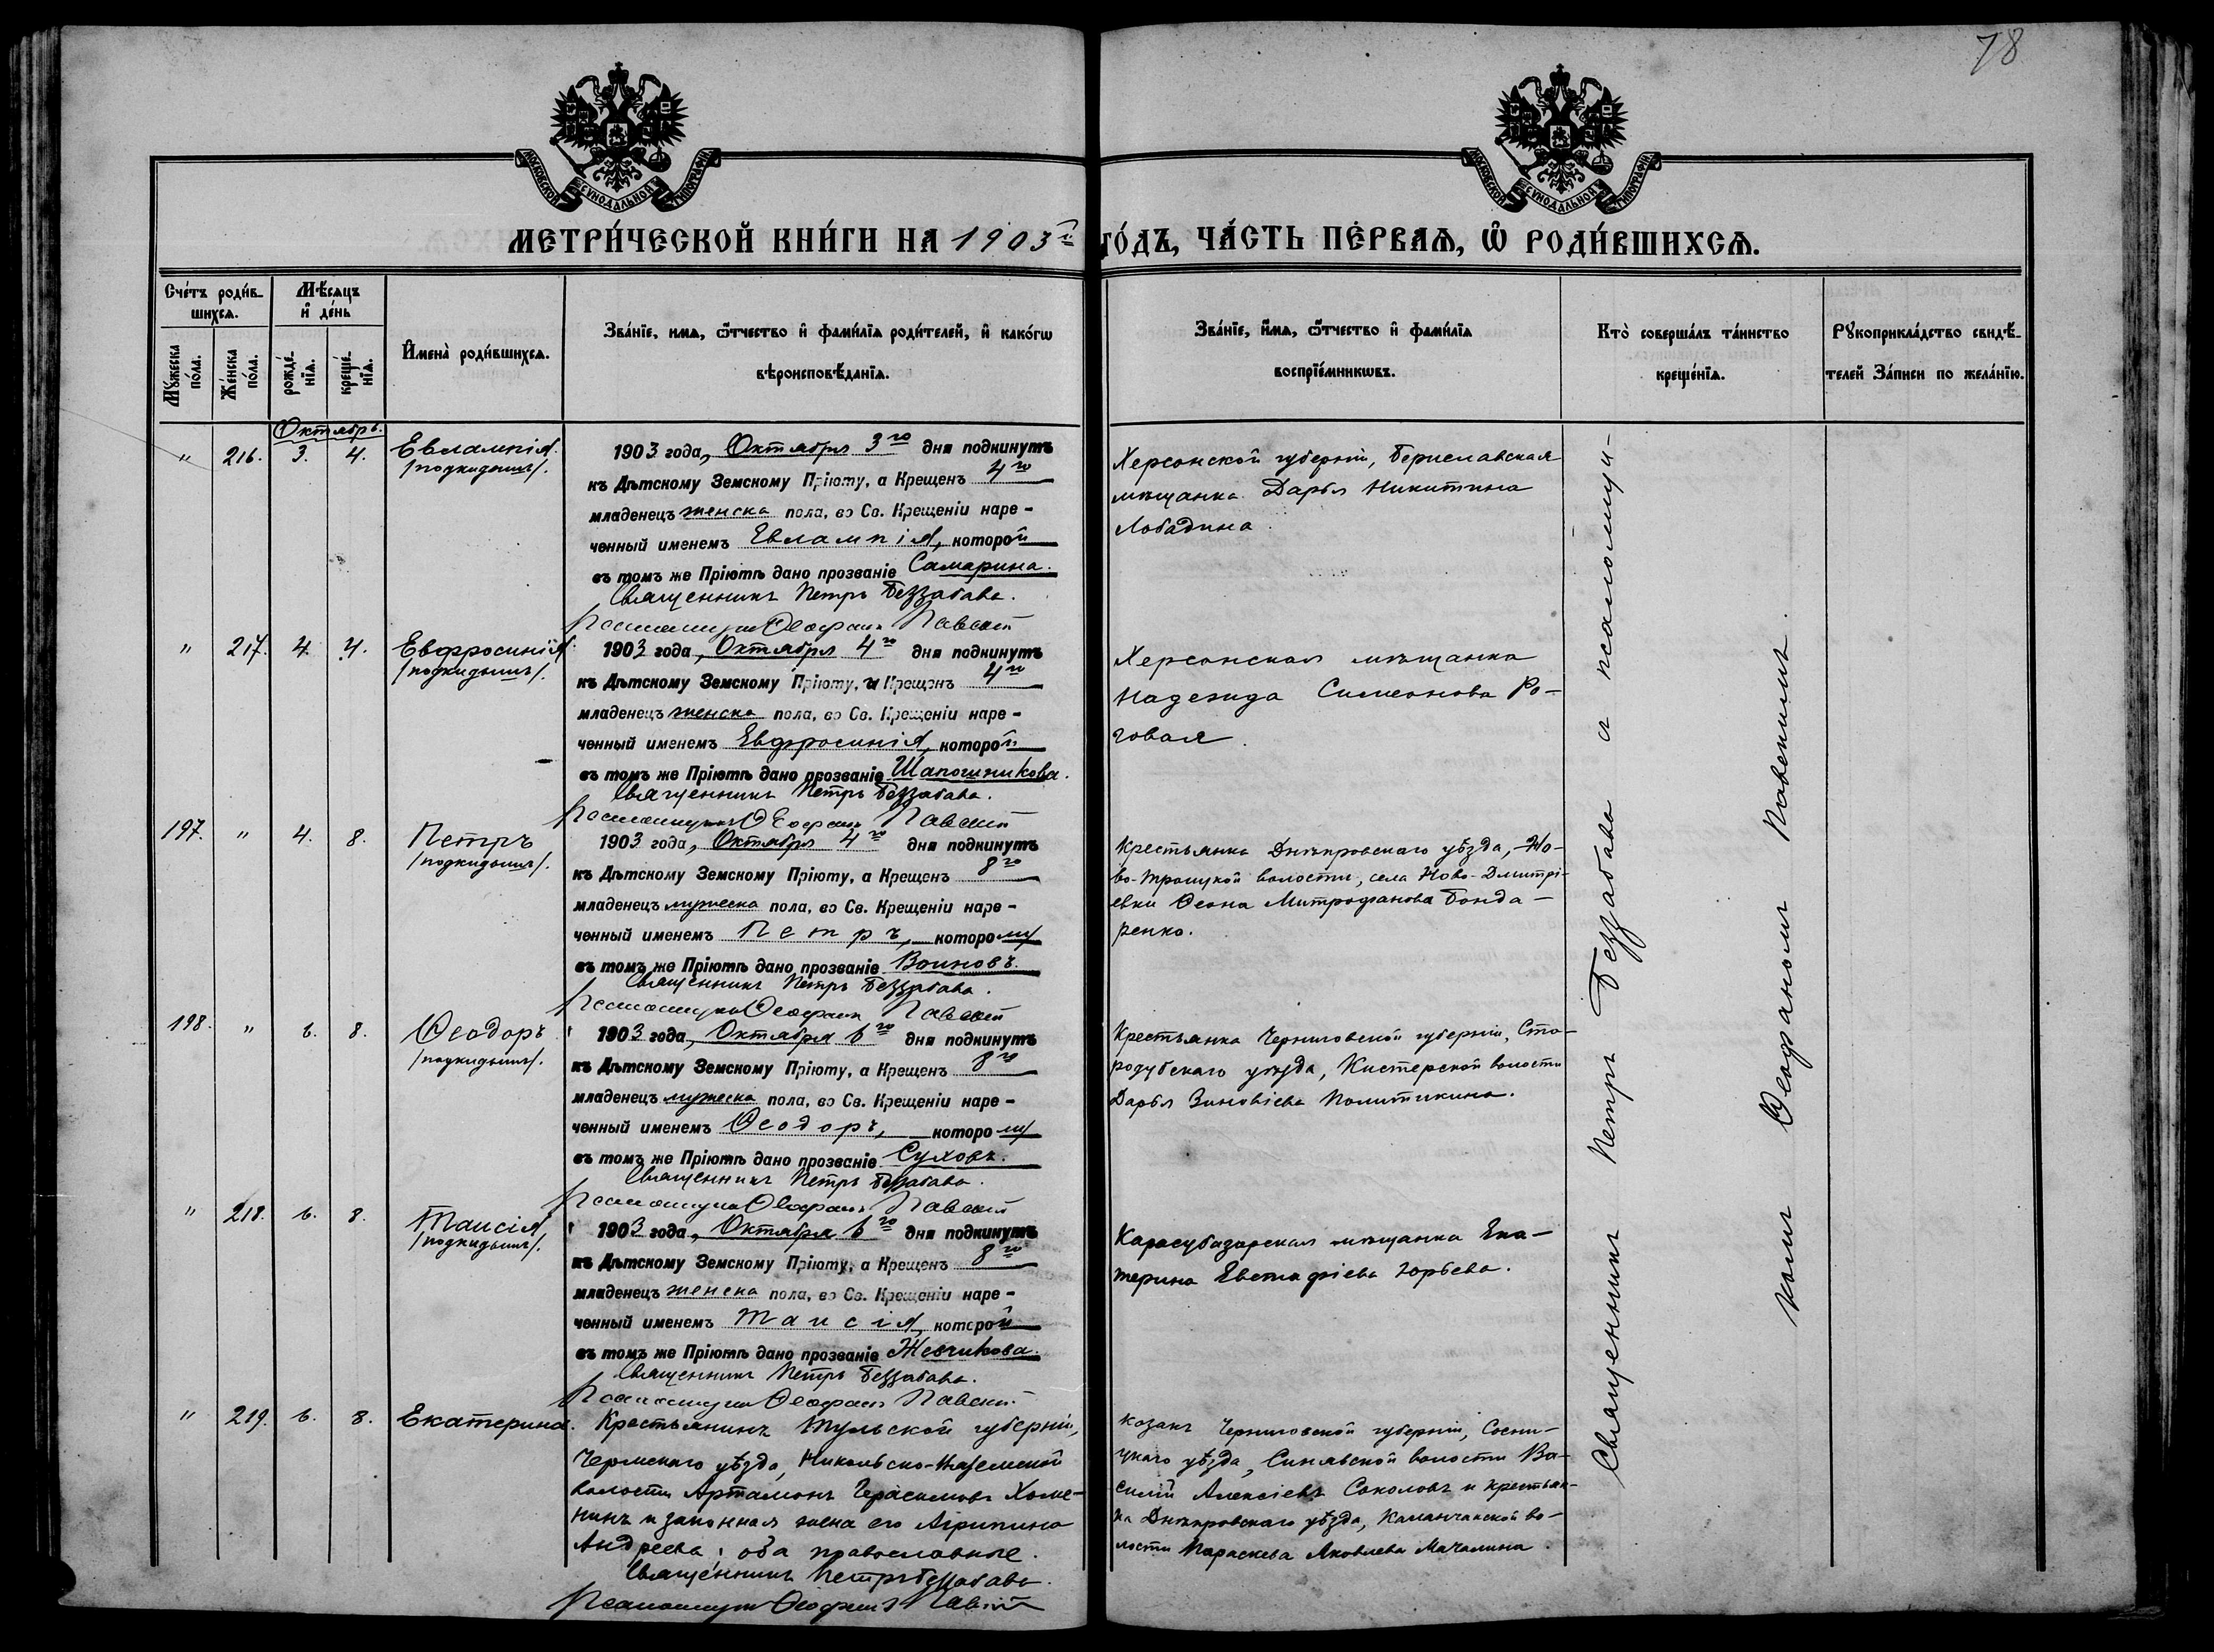 78
МОСКОВСКОЙ СѴНОДАЛЬНОЙ ТИПОГРАФІИ
МОСКОВСКОЙ СѴНОДАЛЬНОЙ ТИПОГРАФІИ
МЕТРИ́ЧЕСКОЙ КНИ́ГИ НА 1903й ГО́ДЪ, ЧА́СТЬ ПЕ́РВАѦ, Ѡ҆ РОДИ́ВШИХСѦ.
Сче́тъ роди́в-
шихсѧ.
Мѣ́сяцъ
и҆ де́нь
Мꙋ́жеска по́ла.
Же́нска по́ла.
рожде́-
нїѧ.
креще́-
нїѧ.
И҆мена̀ роди́вшихсѧ.
Зва́нїе, и҆́мѧ, ѻ҆́тчество и҆ фами́лїѧ роди́телей, и҆ како́гѡ
вѣроисповѣ́данїѧ.
Зва́нїе, и҆́мѧ, ѻ҆́тчество и҆ фами́лїѧ
воспрїе́мникѡвъ.
Кто̀ соверша́лъ та́инство
креще́нїѧ.
Рꙋкоприкла́дство свидѣ́-
телей за́писи по жела́нїю.
Октябрь.
" 216. 3. 4. Евлампія
/подкидышъ/.
1903 года, Октября 3го дня подкинутъ
къ Дѣтскому Земскому Пріюту, а Крещенъ 4го
младенецъ женска пола, во Св. Крещеніи наре-
ченный именемъ Евлампія, которой
въ томъ же Пріютѣ дано прозваніе Самарина.
Священникъ Петръ Беззабава.
Псаломщикъ Ѳеофанъ Павскій
Херсонской губерніи, Бериславская
мѣщанка Дарья Никитина
Лобадина.
" 217. 4. 4. Евфросинія
/подкидышъ/.
1903 года, Октября 4го дня подкинутъ
къ Дѣтскому Земскому Пріюту, и Крещенъ 4го
младенецъ женска пола, во Св. Крещеніи наре-
ченный именемъ Евфросинія, которой
въ томъ же Пріютѣ дано прозваніе Шапошникова.
Священникъ Петръ Беззабава.
Псаломщикъ Ѳеофанъ Павскій
Херсонская мѣщанка
Надежда Симеонова Ро-
говая.
197. " 4. 8. Петръ
/подкидышъ/.
1903 года, Октября 4го дня подкинутъ
къ Дѣтскому Земскому Пріюту, а Крещенъ 8го
младенецъ мужеска пола, во Св. Крещеніи наре-
ченный именемъ Петръ, которому
въ томъ же Пріютѣ дано прозваніе Воиновъ.
Священникъ Петръ Беззабава.
Псаломщикъ Ѳеофанъ Павскій
Крестьянка Днѣпровскаго уѣзда, Но-
во-Троицкой волости, села Ново-Дмитрі-
евки Ѳеона Митрофанова Бонда-
ренко.
198. " 6. 8. Ѳеодоръ
/подкидышъ/.
1903 года, Октября 6го дня подкинутъ
къ Дѣтскому Земскому Пріюту, а Крещенъ 8го
младенецъ мужеска пола, во Св. Крещеніи наре-
ченный именемъ Ѳеодоръ, которому
въ томъ же Пріютѣ дано прозваніе Суховъ.
Священникъ Петръ Беззабава.
Псаломщикъ Ѳеофанъ Павскій
Крестьянка Черниговской губерніи, Ста-
родубскаго уѣзда, Кистерской волости
Дарья Зиновіева Политикина.
" 218. 6. 8. Таисія
/подкидышъ/.
1903 года, Октября 6го дня подкинутъ
къ Дѣтскому Земскому Пріюту, а Крещенъ 8го
младенецъ женска пола, во Св. Крещеніи наре-
ченный именемъ Таисія, которой
въ томъ же Пріютѣ дано прозваніе Жевчикова.
Священникъ Петръ Беззабава.
Псаломщикъ Ѳеофанъ Павскій.
Карасубазарская мѣщанка Ека-
терина Евстафіева Юрьева.
" 219. 6. 8. Екатерина.
Крестьянинъ Тульской губерніи,
Чернскаго уѣзда, Никольско-Вяземской
волости Артамонъ Герасимовъ Хоме-
нинъ и законная жена его Агрипина
Андреева; оба православные.
Священникъ Петръ Беззабава.
Псаломщикъ Ѳеофанъ Павскій
Козакъ Черниговской губерніи, Сосни-
цкаго уѣзда, Синявской волости Ва-
силій Алексіевъ Соколовъ и крестьян-
ка Днѣпровскаго уѣзда, Каланчакской во-
лости Параскева Яковлева Мачалина.
Священникъ Петръ Беззабава съ псаломщи-
комъ Ѳеофаномъ Павскимъ.